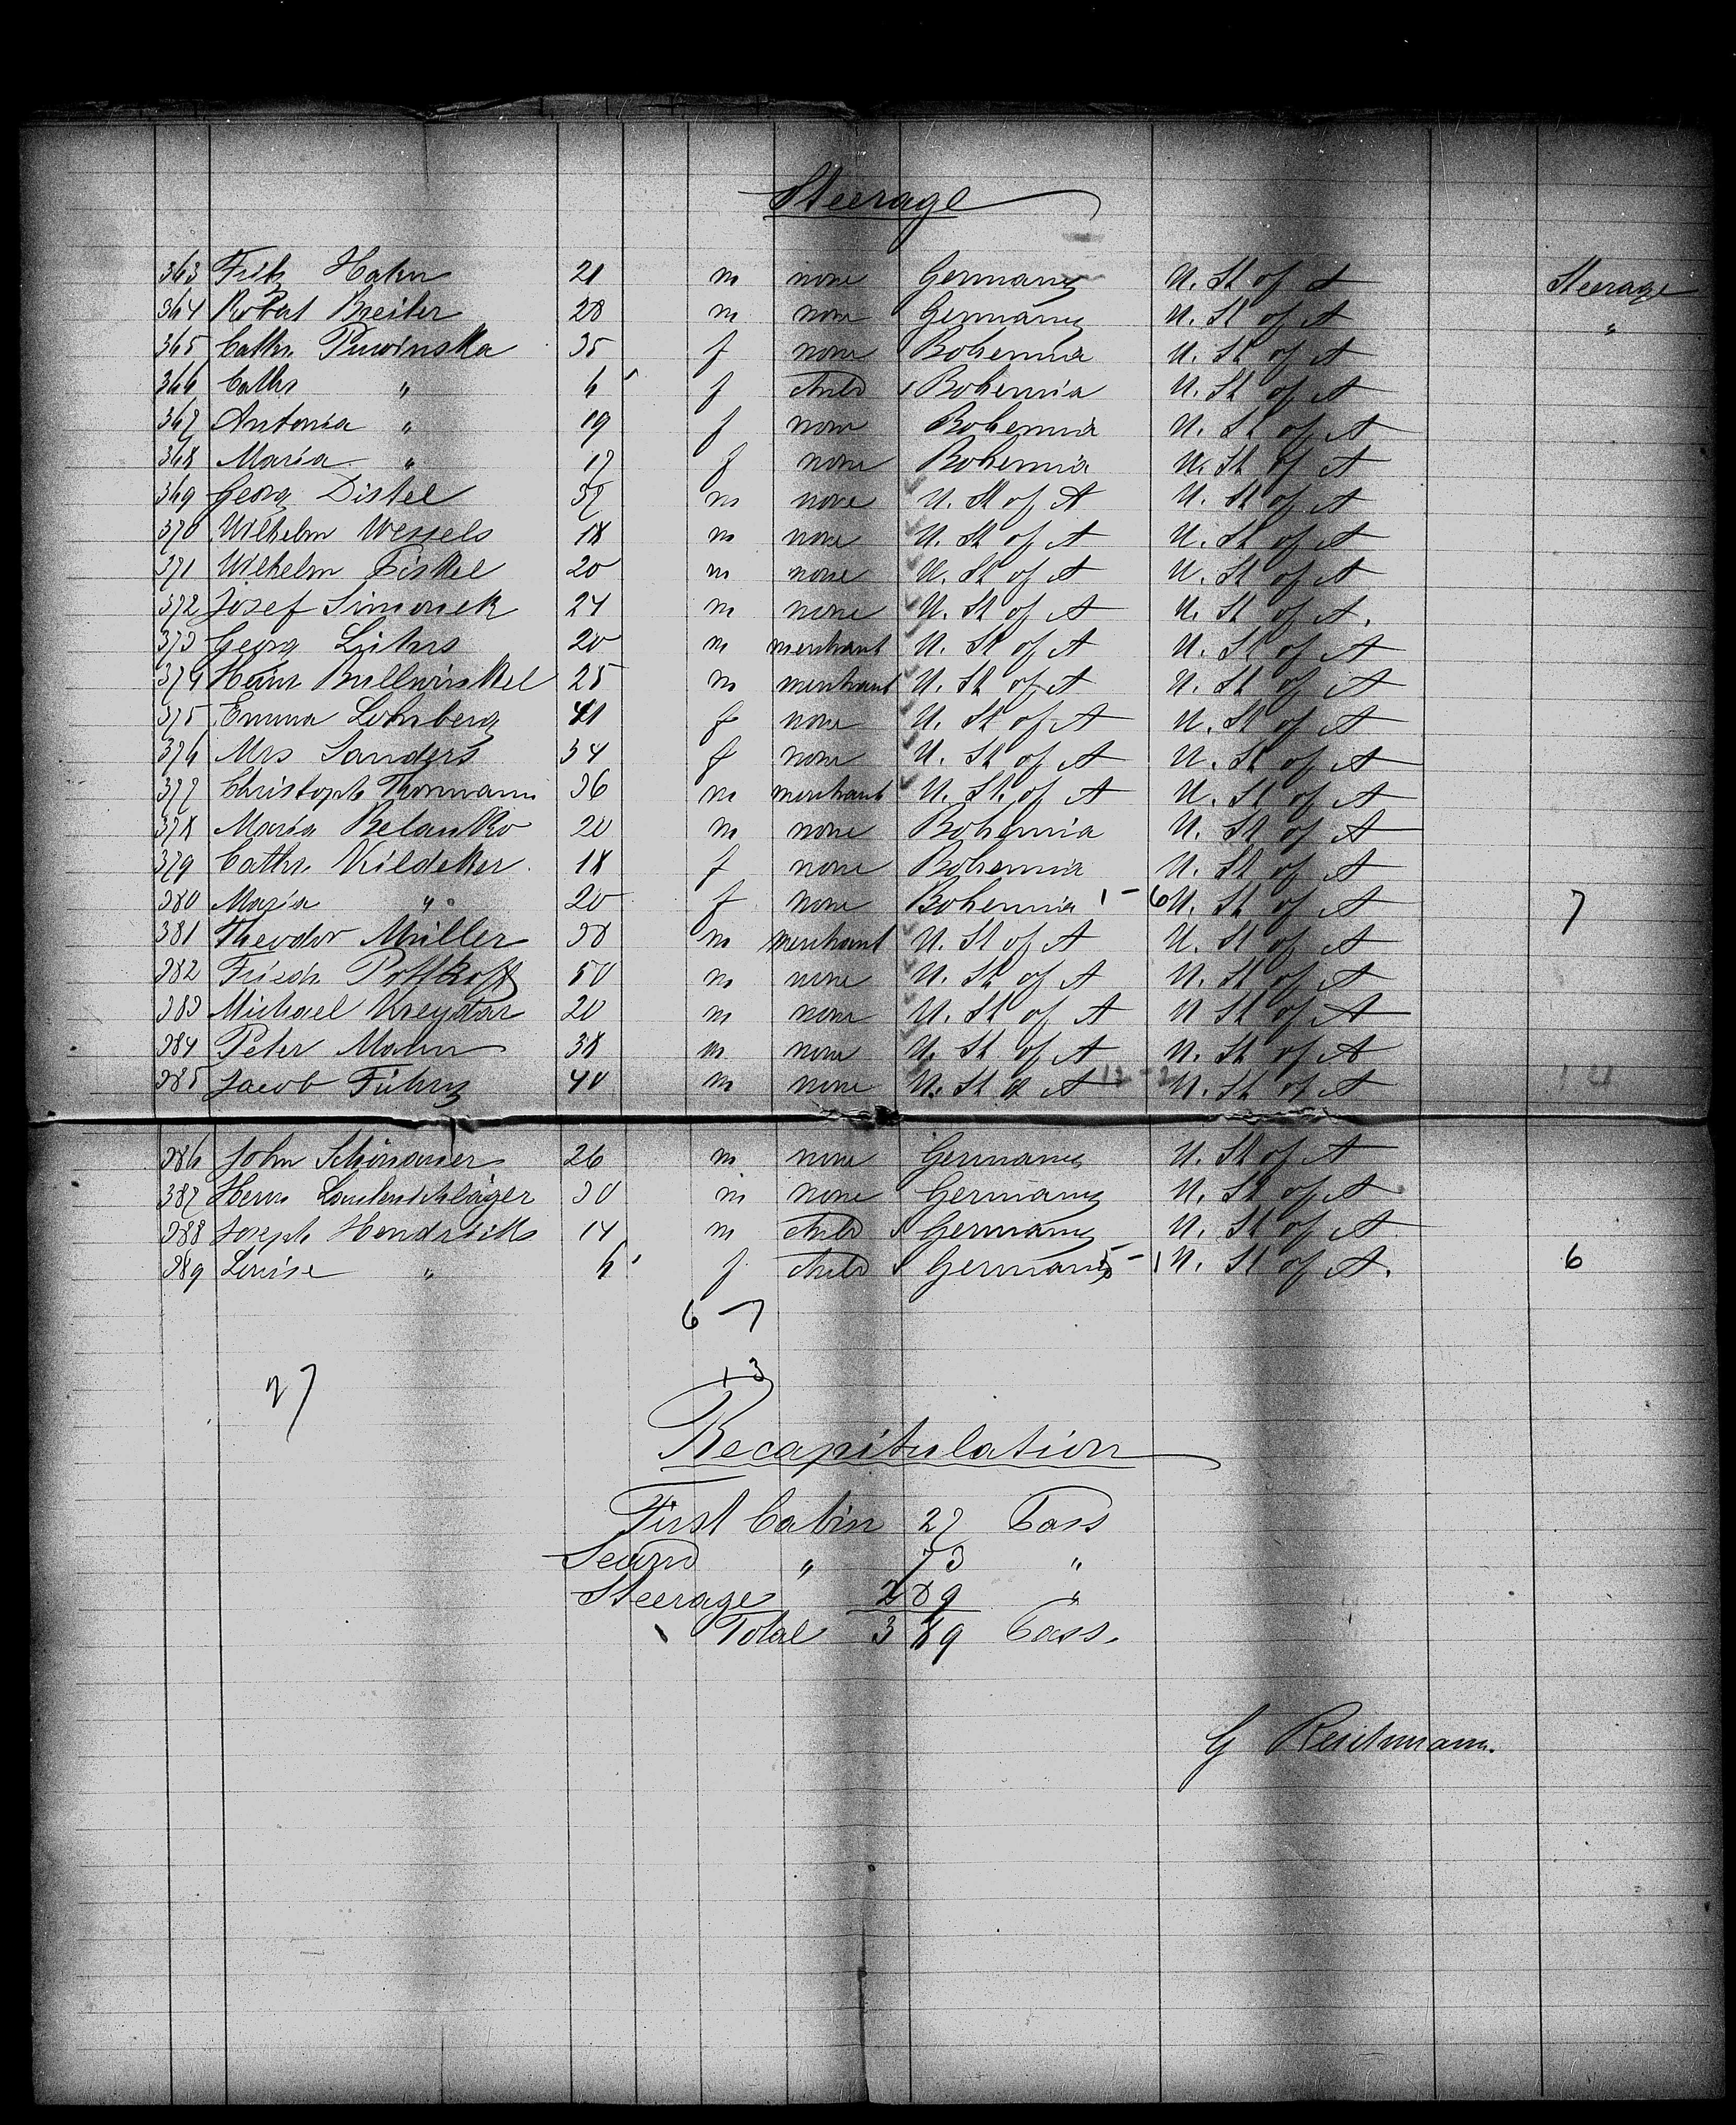 Steerage
363 Fritz Hahn 21 m none Germany U. St of A Steerage
364 Robert Breiter 28 m none Germany U. St of A "
365 Cathr. 35 f none Bohemia U. St of A
366 Cathr " 6 f child Bohemia U. St of A
367 Antonia " 19 f none Bohemia U. St of A
368 Maria " 17 f none Bohemia U. St of A
369 Georg Distel 37 m none U. St of A U. St of A
370 Wilhelm Wessels 18 m none U. St of A U. St of A
371 Wilhelm Fiskel 20 m none U. St of A U. St of A
372 Josef Simonek 24 m none U. St of A U. St of A.
373 Georg Lührs 20 m merchant U. St of A U. St of A
374 Heinr Bullwinkel 25 m merchant U. St of A U. St of A
375 Emma Lohrberg 41 f none U. St of A U. St of A
376 Mrs Sanders 34 f none U. St of A U. St of A
377 Christoph Thormann 36 m merchant U. St. of A U. St of A
378 Maria Belanko 20 m none Bohemia U. St of A
379 Cathr. Kildeker 18 f none Bohemia U. St of A
380 Maria " 20 f none Bohemia 1-6 U. St of A 7
381 Theodor Müller 38 m merchant U. St of A U. St of A
382 Friedr. 50 m none U. St of A U. St of A
383 Michael 20 m none U. St of A U St of A
384 Peter Mahn 38 m none U. St of A U. St of A
385 Jacob 40 m none U. St of A U. St of A
386 John 26 m none Germany U. St of A
387 Herm Lautenschläger 30 m none Germany U. St of A
388 Joseph Hendricks 14 m child Germany U. St of A
389 Louise " 6 f child Germany 5-1 U. St of A. 6
6-7
13
27
Recapitulation
First Cabin 27 Pass
Second " 73 "
Steerage 289 "
Total 389 Pass.
G Reichmann.